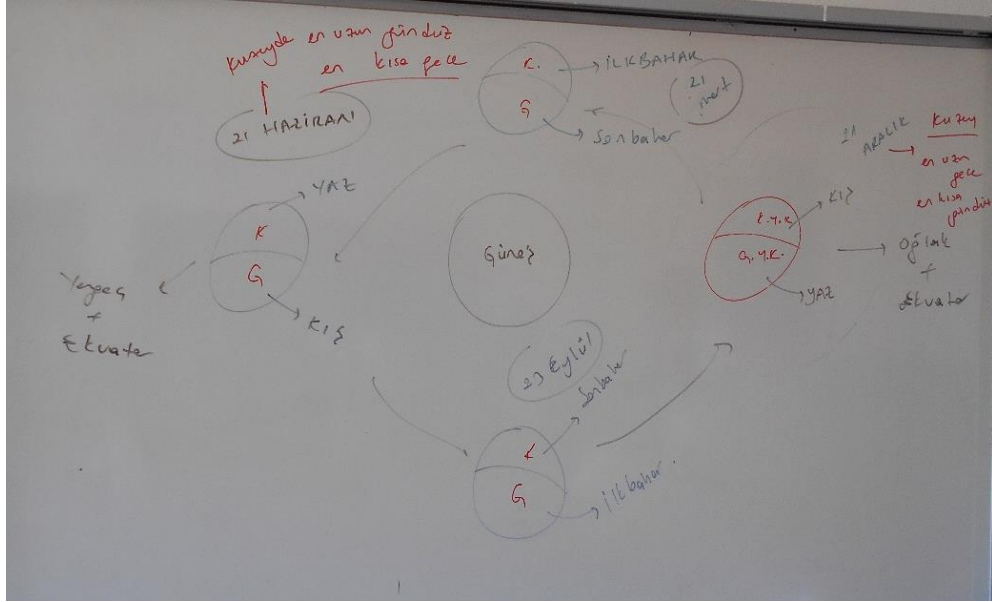 Kuzeyde en uzun gündüz
en kısa gece
21 HAZİRAN
K.
G
İLKBAHAR
Sonbahar
21
mart
21
ARALIK
Kuzey
en uzun
gece
en kısa
gündüz
YAZ
K
G
KIŞ
Yengeç
+
Ekvator
Güneş
K.Y.K
G.Y.K.
KIŞ
YAZ
Oğlak
+
Ekvator
23 Eylül
Sonbahar
K
G
ilkbahar.